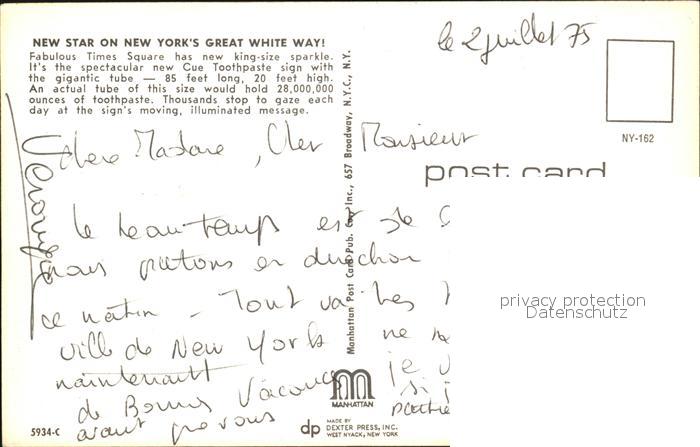 le 2 juillet 75
NEW STAR ON NEW YORK'S GREAT WHITE WAY!
Fabulous Times Square has new king-size sparkle.
It's the spectacular new Cue Toothpaste sign with
the gigantic tube — 85 feet long, 20 feet high.
An actual tube of this size would hold 28,000,000
ounces of toothpaste. Thousands stop to gaze each
day at the sign's moving, illuminated message.
NY-162
post card
Manhattan Post Card Pub. Co., Inc., 657 Broadway, N.Y.C., N.Y.
Chère Madame, Cher Monsieur
le beau temps est de
nous partons en direction
ce matin - Tout va
ville de New York
maintenant
de Bonnes Vacances
avant que vous
ne
je
si
privacy protection
Datenschutz
MANHATTAN
5934-C
dp
MADE BY
DEXTER PRESS, INC.
WEST NYACK, NEW YORK